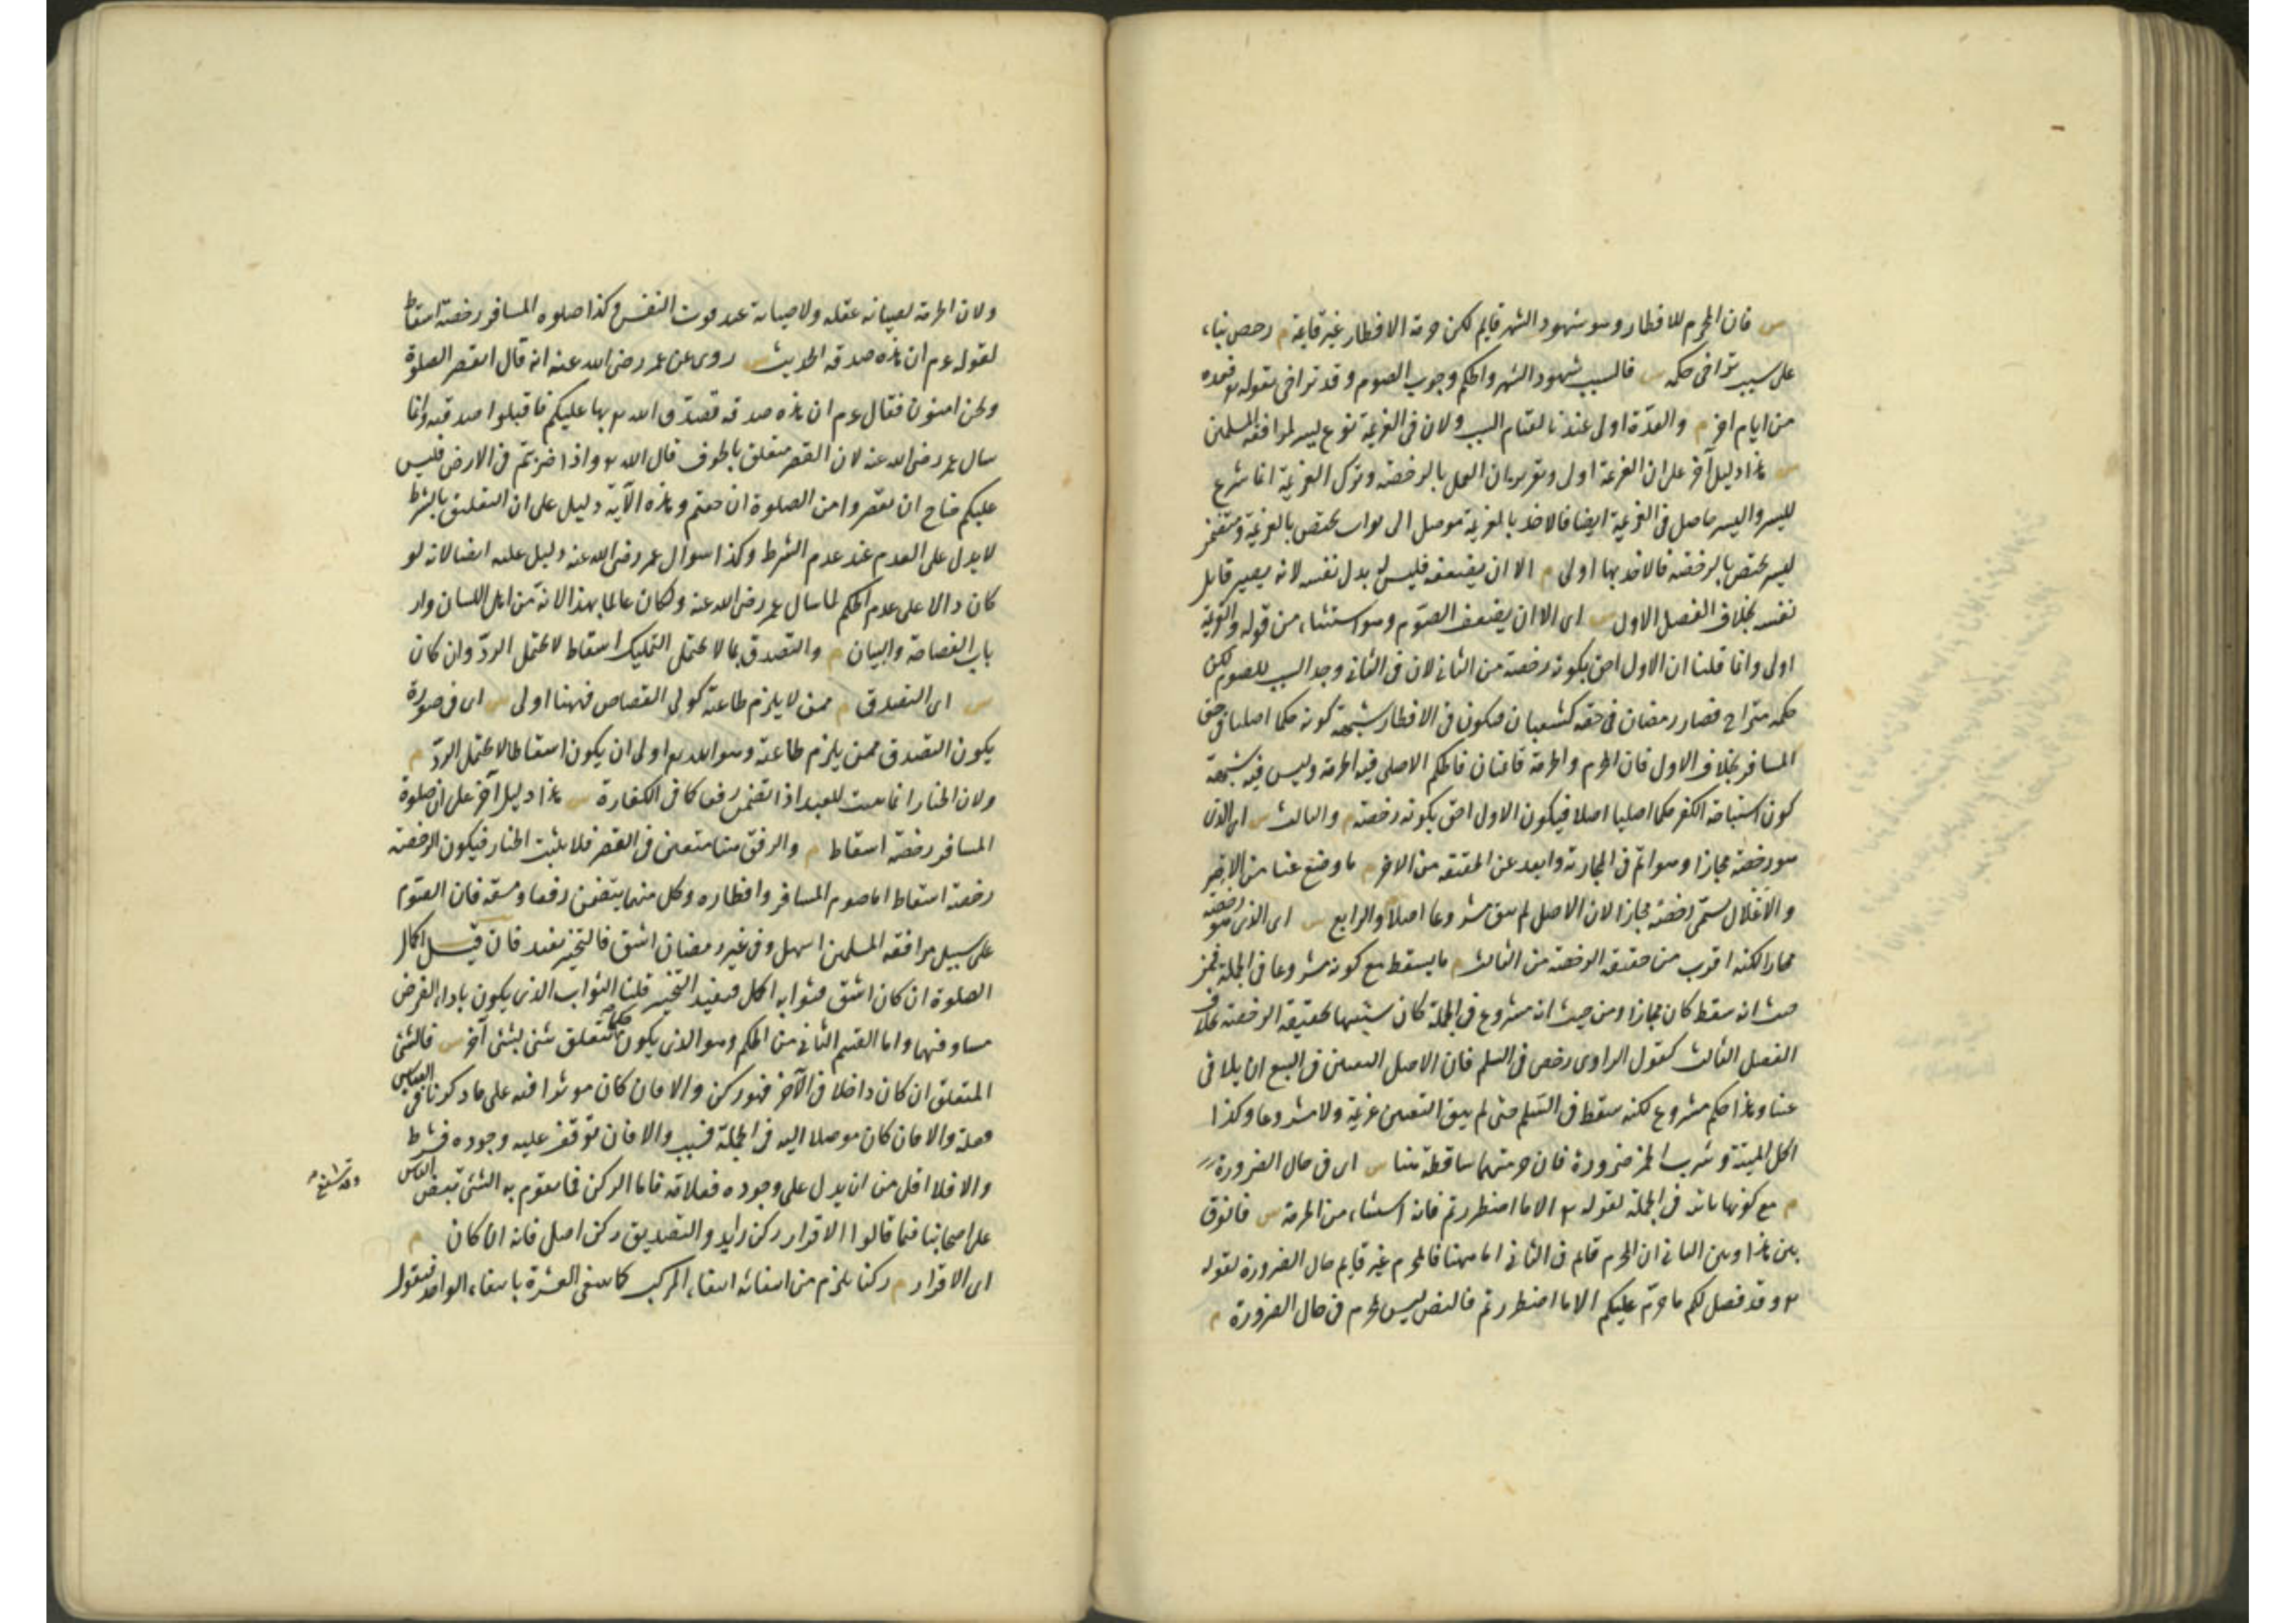 س فان المحرم للافطار وهو شهود الشهر قايم لكن حرمة الافطار غير قايمة م رخص بناء
على سبب تراخى حكمه س فالسبب شهود الشهر والحكم وجوب الصوم وقد تراخى بقوله تع فعدة
من ايام اخر م والعزيمة اولى عندنا لقيام السبب ولان فى العزيمة نوع يسر لموافقة المسلمين
س هذا دليل آخر على ان العزيمة اولى وتقريره ان العمل بالرخصة وترك العزيمة انما شرع
لليسر واليسر حاصل فى العزيمة ايضا فالاخذ بالعزيمة موصل الى ثواب يختص بالعزيمة ومتضمن
ليسر يختص بالرخصة فالاخذ بها اولى م الا ان يضعفه فليس له بذل نفسه لانه يصير قاتل
نفسه بخلاف الفصل الاول س اى الا ان يضعف الصوم وهو استثناء من قوله والعزيمة
اولى وانما قلنا ان الاول احق بكونه رخصة من الثانى لان فى الثانى وجد السبب للصوم لكن
حكمه متراخ فصار رمضان فى حقه كشعبان فيكون فى الافطار شبهة كونه حكما اصليا فى حق
المسافر بخلاف الاول فان المحرم والحرمة قائمتان فالحكم الاصلى فيه الحرمة وليس فيه شبهة
كون استباحة الكفر حكما اصليا اصلا فيكون الاول احق بكونه رخصة م والثالث س اى الذى
هو رخصة مجازا وهو اتم فى المجازية وابعد عن الحقيقة من الاخر م ما وضع عنا من الاصر
والاغلال يسمى رخصة مجازا لان الاصل لم يبق مشروعا اصلا والرابع س اى الذى هو رخصة
مجازا لكنه اقرب من حقيقة الرخصة من الثالث م ما يسقط مع كونه مشروعا فى الجملة فمن
حيث انه سقط كان مجازا ومن حيث انه مشروع فى الجملة كان شبيها بحقيقة الرخصة بخلاف
الفصل الثالث كقول الراوى رخص فى السلم فان الاصل التعيين فى البيع ان يلاقى
عينا وهذا حكم مشروع لكنه سقط فى السلم حتى لم يبق التعيين عزيمة ولا مشروعا وكذا
اكل الميتة وشرب الخمر ضرورة فان حرمتهما ساقطة هنا س اى فى حال الضرورة
م مع كونها ثابتة فى الجملة لقوله تع الا ما اضطررتم فانه استثناء من الحرمة س فالفرق
بين هذا وبين الثانى ان المحرم قايم فى الثانى اما ههنا فالمحرم غير قايم حال الضرورة لقوله
تع وقد فصل لكم ما حرم عليكم الا ما اضطررتم فالنص ليس بمحرم فى حال الضرورة م
ولان الحرمة لصيانة عقله ولا صيانة عند فوت النفس وكذا صلوة المسافر رخصة اسقاط
لقوله عم ان هذه صدقة الحديث س روى عن عمر رضى الله عنه انه قال انقصر الصلوة
ونحن امنون فقال عم ان هذه صدقة تصدق الله تع بها عليكم فاقبلوا صدقته وانما
سال عمر رضى الله عنه لان القصر متعلق بالخوف قال الله تع واذا ضربتم فى الارض فليس
عليكم جناح ان تقصروا من الصلوة ان خفتم وهذه الآية دليل على ان التعليق بالشرط
لا يدل على العدم عند عدم الشرط وكذا سوال عمر رضى الله عنه دليل عليه ايضا لانه لو
كان دالا على عدم الحكم لما سال عمر رضى الله عنه ولكان عالما بهذا لانه من اهل اللسان وار
باب الفصاحة والبيان م والتصدق بما لا يحتمل التمليك اسقاط لا يحتمل الرد وان كان
س اى التصدق م ممن لا يلزم طاعته كولى القصاص فههنا اولى س اى فى صورة
يكون التصدق ممن يلزم طاعته وهو الله تع اولى ان يكون اسقاطا لا يحتمل الرد م
ولان الخيار انما يثبت للعبد اذا تضمن رفقا كما فى الكفارة س هذا دليل آخر على ان صلوة
المسافر رخصة اسقاط م والرفق هنا متعين فى القصر فلا يثبت الخيار فيكون الرخصة
رخصة اسقاط اما صوم المسافر وافطاره وكل منهما يتضمن رفقا ومشقة فان الصوم
على سبيل موافقة المسلمين اسهل وفى غير رمضان اشق فالتخيير يفيد فان قيل اكمال
الصلوة ان كان اشق فثوابه اكمل فيفيد التخيير قلنا الثواب الذى يكون باداء الفرض
مساو فيهما واما القسم الثانى من الحكم وهو الذى يكون حكما بتعلق شئ بشئ آخر س فالشئ
المتعلق ان كان داخلا فى الآخر فهو ركن والا فان كان موثرا فيه على ما ذكرنا فى القياس
فعلة والا فان كان موصلا اليه فى الجملة فسبب والا فان توقف عليه وجوده فشرط
والا فلا اقل من ان يدل على وجوده فعلامة فاما الركن فما يقوم به الشئ تبعض الناس
على اصحابنا فيما قالوا الاقرار ركن زايد والتصديق ركن اصلى فانه ان كان م
اى الاقرار م ركنا يلزم من انتفائه انتفاء المركب كما ينتفى العشرة بانتفاء الواحد فنقول